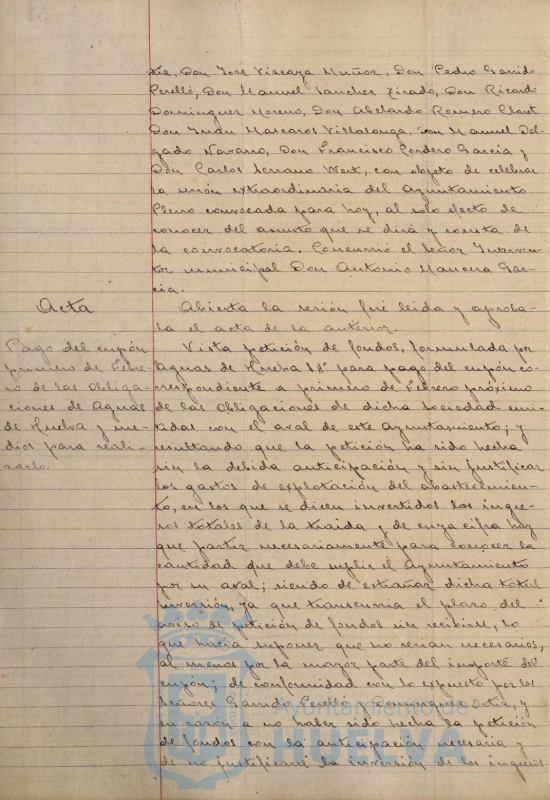 tiz, Don José Vizcaya Muñoz, Don Pedro Garrido
Perelló, Don Manuel Sanchez Tirado, Don Ricardo
Dominguez Moreno, Don Abelardo Romero Claret
Don Juan Mascaros Villalonga, Don Manuel Del-
gado Navarro, Don Francisco Cordero Garcia y
Don Carlos Serrano Wert, con objeto de celebrar
la sesión extraordinaria del Ayuntamiento
Pleno convocada para hoy, al solo efecto de
conocer del asunto que se dirá y consta de
la convocatoria. Concurrió el Señor Interven-
tor municipal Don Antonio Mancera Gar-
cia.
Acta
Abierta la sesión fué leida y aproba-
da el acta de la anterior.
Pago del cupón
primero de Febre-
ro de las Obliga-
ciones de Aguas
de Huelva y me-
dios para reali-
zarlo.
Vista petición de fondos, formulada por
Aguas de Huelva SA para pago del cupón co-
rrespondiente a primero de Febrero próximo
de las Obligaciones de dicha Sociedad emi-
tidas con el aval de este Ayuntamiento; y
resultando que la petición ha sido hecha
sin la debida anticipación y sin justificar
los gastos de explotación del abastecimien-
to, en los que se dicen invertidos los ingre-
sos totales de la traida y de cuya cifra hay
que partir necesariamente para conocer la
cantidad que debe suplir el Ayuntamiento
por su aval; siendo de extrañar dicha total
inversión, ya que transcurria el plazo del
aviso de petición de fondos sin recibirse, lo
que hacia suponer que no serian necesarios,
al menos por la mayor parte del importe del
cupón; de conformidad con lo expuesto por los
Señores Garrido Perelló y Dominguez Ortiz, y
en razón a no haber sido hecha la petición
de fondos con la anticipación necesaria y
de no justificarse la inversión de los ingresos
Ayuntamiento de
HUELVA